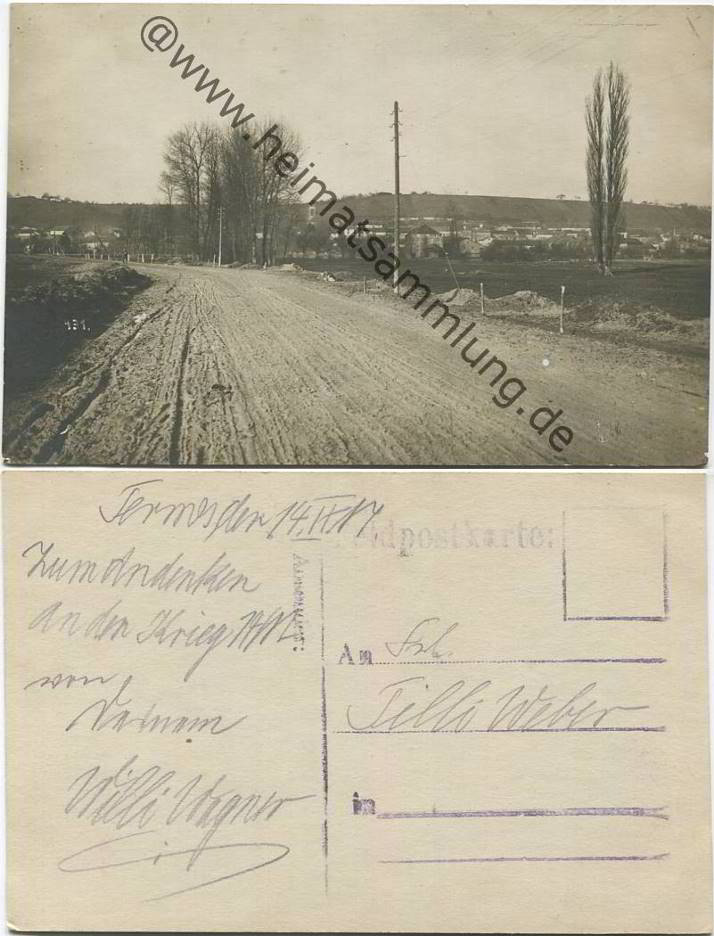 @www.heimatsammlung.de
131.
Termes, den 14.IV.17
Feldpostkarte:
Zum Andenken
an den Krieg
von
Deinem
Willi Wagner
Absender:
An Frl.
Tilli Weber
in